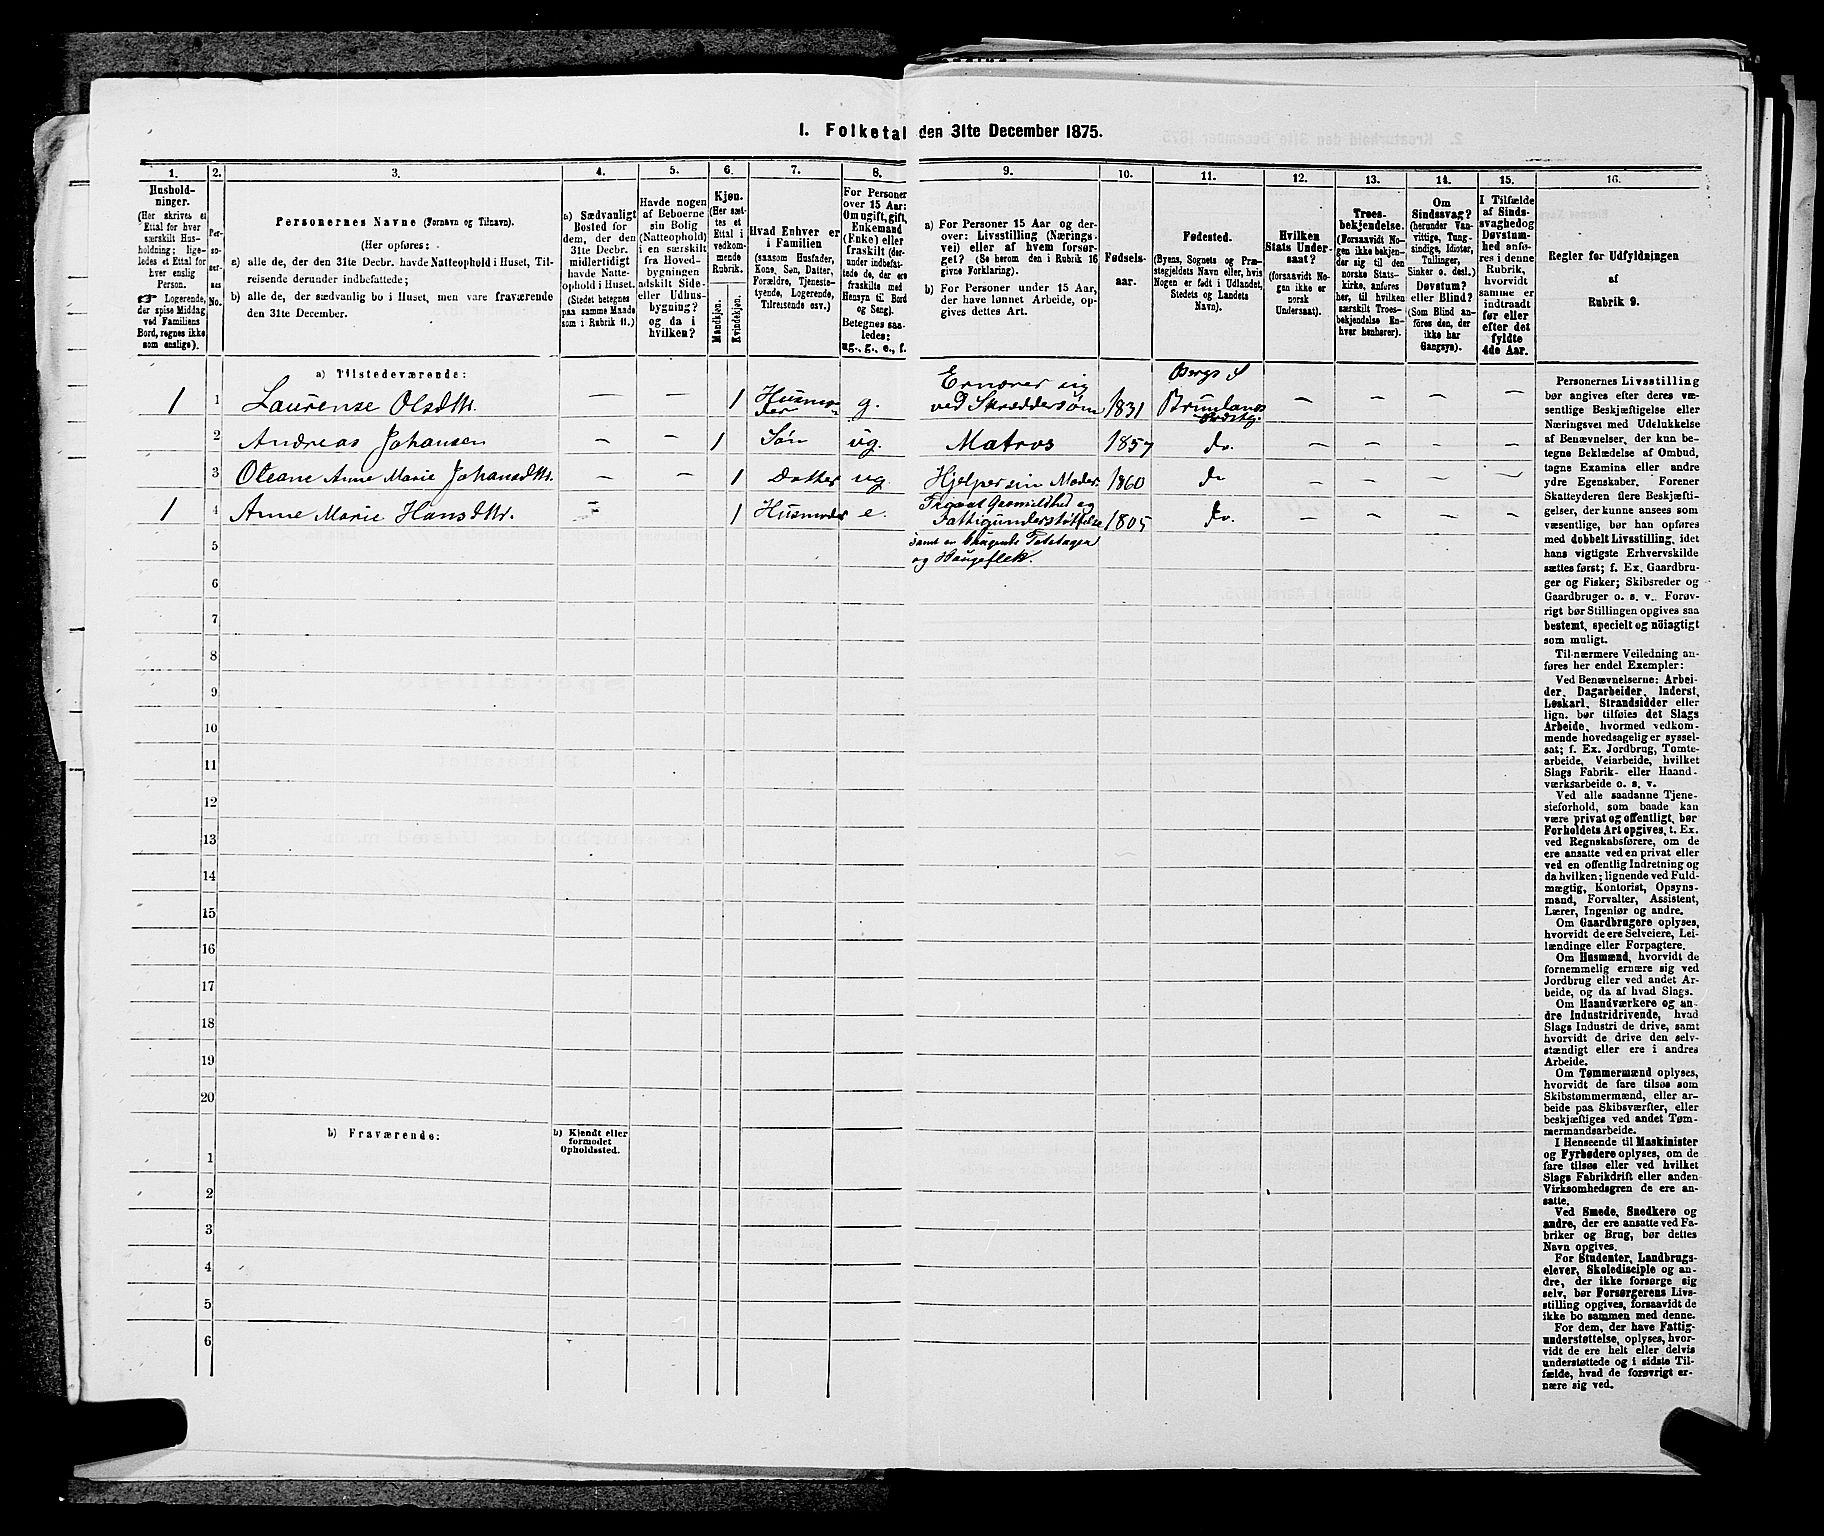 I. Folketal den 31te December 1875.
1. 2. 3. 4. 5. 6. 7. 8. 9. 10. 11. 12. 13. 14. 15. 16.
Hushold-
ninger.
(Her skrives et
Ettal for hver
særskilt Hus-
holdning; lige-
ledes et Ettal for
hver enslig
Person.
☞ Logerende,
der spise Middag
ved Familiens
Bord, regnes ikke
som enslige).
Per-
so-
ner-
nes
No.
Personernes Navne (Fornavn og Tilnavn).
(Her opføres:
a) alle de, der den 31te Decbr. havde Natteophold i Huset, Til-
reisende derunder indbefattede;
b) alle de, der sædvanlig bo i Huset, men vare fraværende
den 31te December.
a) Sædvanligt
Bosted for
dem, der den
31te Decbr.
midlertidigt
havde Natte-
ophold i Huset.
(Stedet betegnes
paa samme Maade
som i Rubrik 11.)
Havde nogen
af Beboerne
sin Bolig
(Natteophold)
i en særskilt
fra Hoved-
bygningen
adskilt Side-
eller Udhus-
bygning?
og da i
hvilken?
Kjøn.
(Her sæt-
tes et
Ettal i
vedkom-
mende
Rubrik.
Mandkjøn.
Kvindekjøn.
Hvad Enhver er
i Familien
(saasom Husfader,
Kone, Søn, Datter,
Forældre, Tjeneste-
tyende, Logerende,
Tilreisende osv.)
For Personer
over 15 Aar:
Om ugift, gift,
Enkemand
(Enke) eller
fraskilt (der-
under indbefat-
tede de, der ere
fraskilte med
Hensyn til Bord
og Seng).
Betegnes saa-
ledes:
ug., g., e., f.
a) For Personer 15 Aar og der-
over: Livsstilling (Nærings-
vei) eller af hvem forsør-
get? (Se herom den i Rubrik 16
givne Forklaring).
b) For Personer under 15 Aar,
der have lønnet Arbeide, op-
gives dettes Art.
Fødsels-
aar.
Fødested.
(Byens, Sognets og Præ-
stegjeldets Navn eller, hvis
Nogen er født i Udlandet,
Stedets og Landets
Navn).
Hvilken
Stats Under-
saat?
(forsaavidt No-
gen ikke er
norsk
Undersaat).
Troes-
bekjendelse.
(Forsaavidt No-
gen ikke bekjen-
der sig til den
norske Stats-
kirke, anføres
her, til hvilken
særskilt Troes-
bekjendelse En-
hver henhører).
Om
Sindssvag?
(herunder Van-
vittige, Tung-
sindige, Idioter,
Tullinger,
Sinker o. desl.)
Døvstum?
eller Blind?
(Som Blind an-
føres den, der
ikke har
Gangsyn).
I Tilfælde
af Sinds-
svaghed og
Døvstum-
hed anfø-
res i denne
Rubrik,
hvorvidt
samme er
indtraadt
før eller
efter det
fyldte
4de Aar.
Regler før Udfyldningen
af
Rubrik 9.
a) Tilstedeværende:
1 1 Laurense Olsdtr. — — 1 Husmo-
der g. Ernærer sig
ved Skræddersøm 1831 Bergs S
Brunlanes
Prstg. — — — —
2 Andreas Johansen — — 1 Søn ug. Matros 1857 do. — — — —
3 Oleane Anne Marie Johansdtr. — — 1 Datter ug. Hjelper sin Moder 1860 do — — — —
1 4 Anne Marie Hansdtr. — 1 Husmoder e. Fattigunderstøttelse 1805 do. — — — —
5
og Haugeflek.
6
7
8
9
10
11
12
13
14
15
16
17
18
19
20
b) Fraværende:
b) Kjendt eller
formodet
Opholdssted.
1
2
3
4
5
6
Personernes Livsstilling
bør angives efter deres væ-
sentlige Beskjæftigelse eller
Næringsvei med Udelukkelse
af Benævnelser, der kun be-
tegne Beklædelse af Ombud,
tagne Examina eller andre
ydre Egenskaber. Forener
Skatteyderen flere Beskjæfti-
gelser, der kunne ansees som
væsentlige, bør han opføres
med dobbelt Livsstilling, idet
hans vigtigste Erhvervskilde
sættes først; f. Ex. Gaardbru-
ger og Fisker; Skibsreder og
Gaardbruger o. s. v. Forøv-
rigt bør Stillingen opgives saa
bestemt, specielt og nöiagtigt
som muligt.
Til nærmere Veiledning an-
føres her endel Exempler:
Ved Benævnelserne: Arbei-
der, Dagarbeider, Inderst,
Løskarl, Strandsidder eller
lign. bør tilføies det Slags
Arbeide, hvormed vedkom-
mende hovedsagelig er syssel-
sat; f. Ex. Jordbrug, Tomte-
arbeide, Veiarbeide, hvilket
Slags Fabrik- eller Haand-
værksarbeide o. s. v.
Ved alle saadanne Tjene-
steforhold, som baade kan
være privat og offentligt, bør
Forholdets Art opgives, t. Ex.
ved Regnskabsførere, om de
ere ansatte ved en privat eller
ved en offentlig Indretning og
da hvilken; lignende ved Fuld-
mægtig, Kontorist, Opsyns-
mand, Forvalter, Assistent,
Lærer, Ingeniør og andre.
Om Gaardbrugere oplyses,
hvorvidt de ere Selveiere, Lei-
lændinge eller Forpagtere.
Om Husmænd, hvorvidt de
fornemmelig ernære sig ved
Jordbrug eller ved andet Ar-
beide, og da af hvad Slags.
Om Haandværkere og an-
dre Industridrivende, hvad
Slags Industri de drive, samt
hvorvidt de drive den selv-
stændigt eller ere i andres
Arbeide.
Om Tømmermænd oplyses,
hvorvidt de fare tilsøs som
Skibstømmermænd, eller ar-
beide paa Skibsværfter, eller
beskjæftiges ved andet Tøm-
mermandsarbeide.
I Henseende til Maskinister
og Fyrbødere oplyses, om de
fare tilsøs eller ved hvilket
Slags Fabrikdrift eller anden
Virksomhedsgren de ere an-
satte.
Ved Smede, Snedkere og
andre, der ere ansatte ved Fa-
briker og Brug, bør dettes
Navn opgives.
For Studenter, Landbrugs-
elever, Skoledisciple og an-
dre, der ikke forsørge sig
selv, bør Forsørgerens Livs-
stilling opgives, forsaavidt de
ikke bo sammen med denne.
For dem, der have Fattig-
understøttelse, oplyses, hvor-
vidt de ere helt eller delvis
understøttede og i sidste Til-
fælde, hvad de forøvrigt er-
nære sig ved.